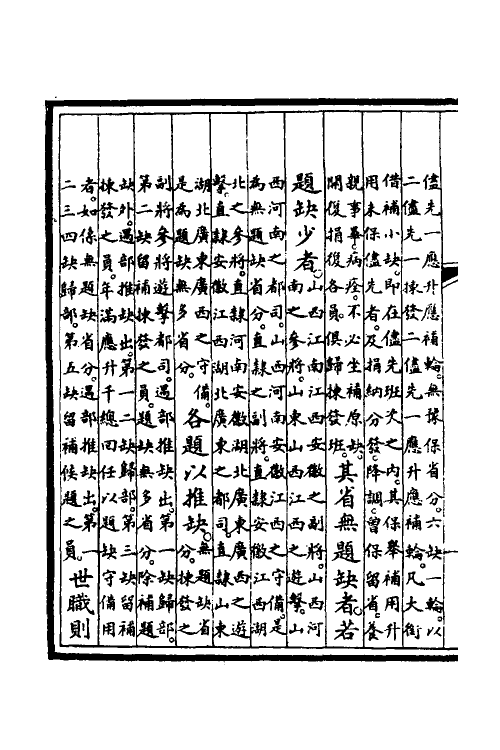 儘先一應升應補輪。無揀保省分。六缺一輪。以
二儘先一揀發二儘先一應升應補輪。凡大銜
借補小缺。即在儘先班次之內。其保舉補用升
用未保儘先者。及捐納分發。降調。曾保留省。養
親事畢。病痊。不必坐補原缺。
開復捐復各員。俱歸揀發班。
其省無題缺者。若
題缺少者。
山西江南江西安徽之副將。山西河
南之參將。山東山西江西之遊擊。山
西河南之都司。山西河南安徽江西之守備。是
為無題缺省分。直隸之副將。直隸安徽江西湖
北之參將。直隸河南安徽湖北廣東廣西之遊
擊。直隸安徽江西湖北廣東之都司。直隸山東
湖北廣東廣西之守備。
是為題缺無多省分。
各題以推缺。
無題缺省
分。揀發之
副將參將遊擊都司。遇部推缺出。第一缺歸部。
第二缺留補揀發之員。題缺無多省分。除補題
缺外。遇部推缺出。第一二缺歸部。第三缺留補
揀發之員。年滿應升千總回任以題缺守備用
者。如係無題缺省分。遇部推缺出。第一
二三四缺歸部。第五缺留補候題之員。
世職則